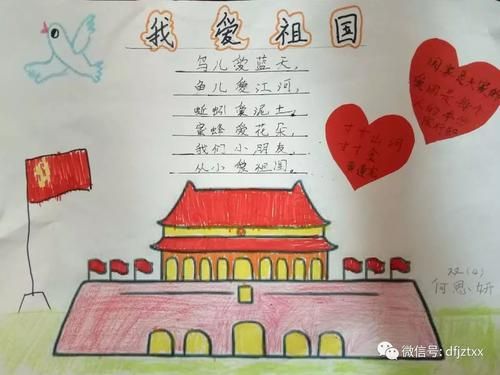 我爱祖国
鸟儿爱蓝天，
鱼儿爱江河，
蚯蚓爱泥土，
蜜蜂爱花朵，
我们小朋友，
从小爱祖国。
国家是大家的
爱国是每个
人的本
寸寸山河
寸寸金
双(4)
何思妍
微信号: dfjztxx